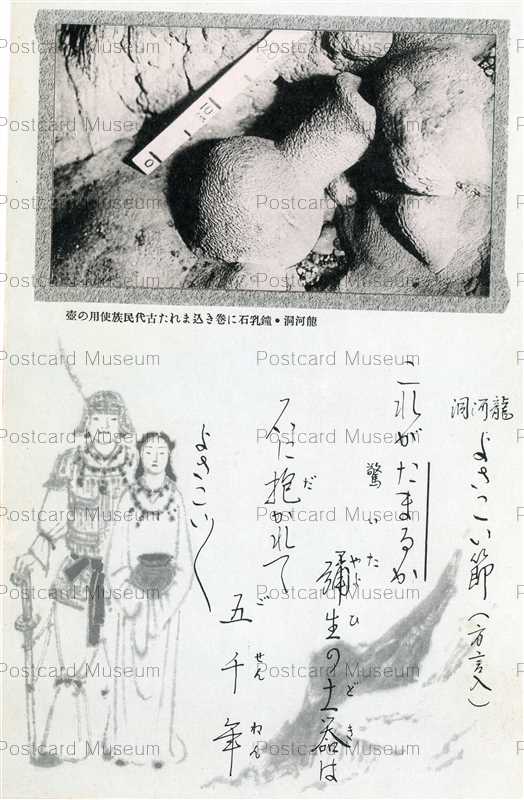 0
10
cm
壺の用使族民代古たれま込き巻に石乳鐘・洞河龍
龍河洞
よさこい節(方言入)
これがたまるか
驚いた
彌生の土器は
やよひ どき
に抱かれて
だ
五千年
ごせんねん
よさこい〱
Postcard Museum